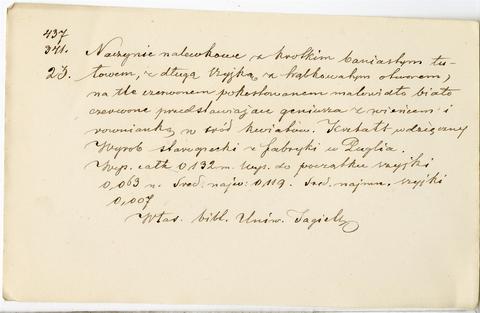 437
341.
23. Naczynie nalewkowe z krótkim baniastym tu-
łowem, z długą szyjką, z lejkowatym otworem,
na tle czerwonem pokostowanem malowidło biało
czerwone przedstawiające geniusza z wieńcem i
równianką, w śród kwiatów. Kształt wdzięczny
Wyrób starogrecki z fabryki w Puglia.
Wys. całk. 0,132 m. wys. do początku szyjki
0,063 m. Śred. najw: 0,119. Śred. najmn. szyjki
0,007
Włas. bibl. Uniw. Jagiell.